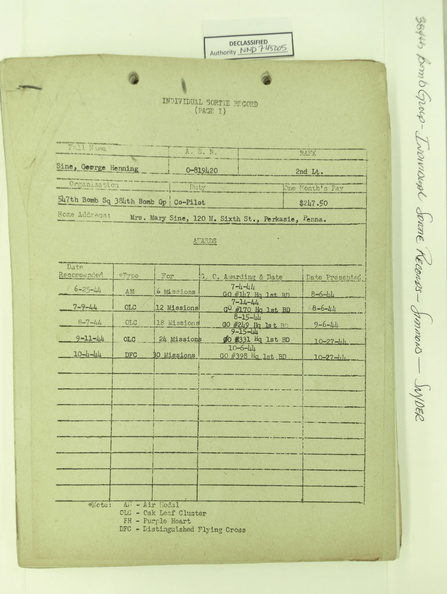 DECLASSIFIED
Authority NND 745005
384th Bomb Group - Individual Sortie Records - Simmons - Snyder
INDIVIDUAL SORTIE RECORD
(PAGE I)
Full Name A. S. N. RANK
Sine, George Henning O-819420 2nd Lt.
Organization Duty One Month's Pay
547th Bomb Sq 384th Bomb Gp Co-Pilot $247.50
Home Address: Mrs. Mary Sine, 120 N. Sixth St., Perkasie, Penna.
AWARDS
Date
Recommended *Type For G. O. Awarding & Date Date Presented
7-4-44
6-25-44 AM 6 Missions GO #147 Hq 1st BD 8-6-44
7-14-44
7-9-44 OLC 12 Missions GO #170 Hq 1st BD 8-6-44
8-15-44
8-7-44 OLC 18 Missions GO #249 Hq 1st BD 9-6-44
9-15-44
9-11-44 OLC 24 Missions GO #331 Hq 1st BD 10-27-44
10-6-44
10-4-44 DFC 30 Missions GO #398 Hq 1st BD 10-27-44
*Note: AM - Air Medal
OLC - Oak Leaf Cluster
PH - Purple Heart
DFC - Distinguished Flying Cross